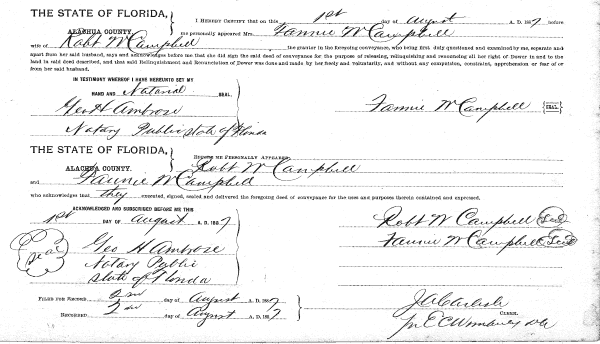 THE STATE OF FLORIDA,
ALACHUA COUNTY.
I HEREBY CERTIFY that on this 1st day of August A. D. 1887 before
me personally appeared Mrs. Fannie W Campbell
wife of Robt W Campbell the grantor in the foregoing conveyance, who being first duly questioned and examined by me, separate and
apart from her said husband, says and acknowledges before me that she did sign the said deed of conveyance for the purpose of releasing, relinquishing and renouncing all her right of Dower in and to the
land in said deed described, and that said Relinquishment and Renunciation of Dower was done and made by her freely and voluntarily, and without any compulsion, constraint, apprehension or fear of or
from her said husband.
IN TESTIMONY WHEREOF I HAVE HEREUNTO SET MY
HAND AND Notarial SEAL,
Geo H Ambrose
Fannie W Campbell SEAL.
Notary Public State of Florida
THE STATE OF FLORIDA,
ALACHUA COUNTY.
BEFORE ME PERSONALLY APPEARED Robt W Campbell
and Fannie W Campbell
who acknowledges that they executed, signed, sealed and delivered the foregoing deed of conveyance for the uses and purposes therein contained and expressed.
ACKNOWLEDGED AND SUBSCRIBED BEFORE ME THIS
1st DAY OF August A. D. 1887
Robt W Campbell Seal
Fannie W Campbell Seal
Seal Geo H Ambrose
Notary Public
State of Florida
FILED FOR RECORD 2nd day of August 1887
RECORDED 2nd day of August 1887
J A Carlisle
CLERK.